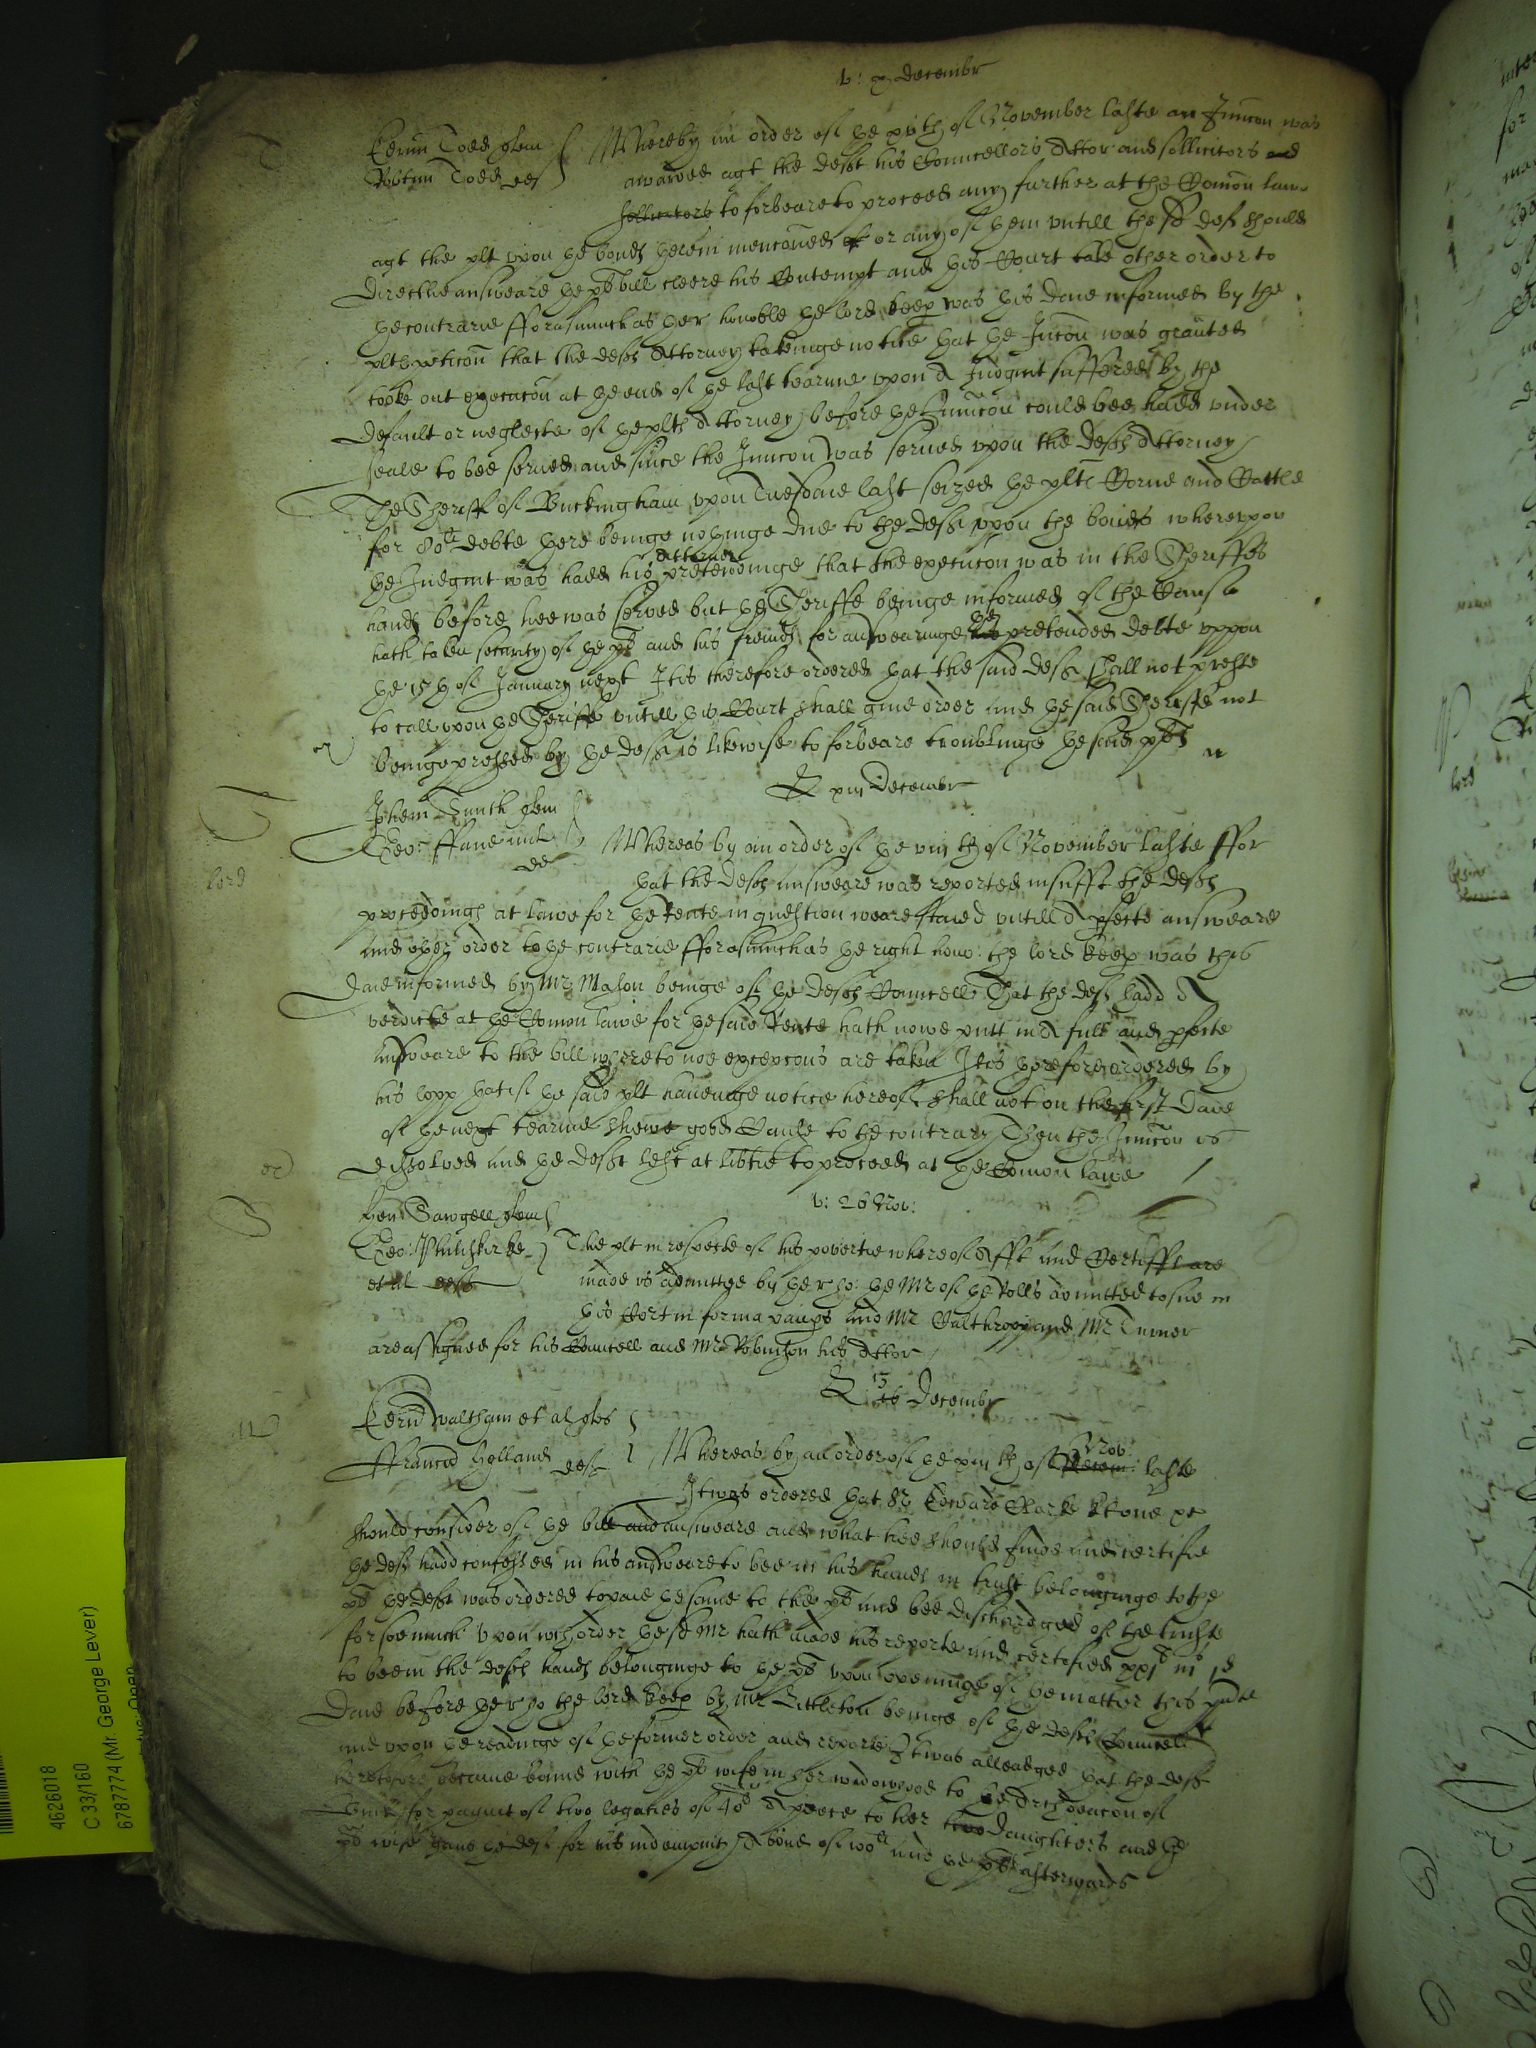 v: x Decembr
T
Edmu Todd plem
Robtm Todd def
Whereby an order of the xvth of November laste an Iniuncon was
awarded agt the deft his Councellors Attor and sollicitors and
sollicitors to forbeare to proceed any further at the Comon lawe
agt the plt upon the bonds therin menconed or any of them untill the sd deft should
directlie answeare the pts bill cleere his Contempt and this Court take other order to
the contrarie fforasmuch as the r honoble the lord keep was this daie informed by the
plts peticon that the defts Attorney takeinge notice that the Iniuncon was graunted
tooke out execucon at the end of the last tearme upon a Iudgmt suffered by the
default or neglecte of the plts Attorney before the Iniuncon could bee hadd under
seale to bee served and since the Iniuncon was served upon the defts Attorney
The Sheriff of Buckingham upon Tuesdaie last seized the plts Corne and Cattle
for 80li debte there beinge nothinge due to the deft upon the bonds whereupon
the Iudgmt was hadd his Attorney pretendinge that the execucon was in the Sheriffes
hands before hee was served but the Sheriffe beinge informed of the Cause
hath taken security of the pt and his freinds for answearinge the pretended debte uppon
the 15th of January next It is therefore ordered that the said deft shall not presse
to call upon the Sheriffe untill this Court shall give order and the said Sheriffe not
beinge pressed by the deft is likewise to forbeare troublinge the said plt
xiii Decembr
T
Johem Smith plem
Geo: ffane mil
def
lord
Whereas by an order of the viiith of November laste ffor
that the defts answeare was reported insufft the defts
proceedings at lawe for the Rente in question weare staied untill a pfecte answeare
and other order to the contrarie fforasmuch as the right hono: the lord keep was this
daie informed by Mr Mason beinge of the defts Councell That the deft hadd a
verdicte at the Comon lawe for the said Rente hath nowe putt in a full and pfecte
answeare to the bill whereto noe excepcons are taken It is therefore ordered by
his lopp that if the said plt haveinge notice hereof shall not on the first daie
of the next tearme shewe good Cause to the contrary Then the Iniuncon is
dissolved and the deft left at libtie to proceed at the Comon lawe
v: 26 Nov:
S
Hen Sawgell plem
Geo: Philskirke
et al defts
The plt in respecte of his povertie whereof Afft and Certifft are
made is admitted by the r ho: the Mr of the Rolls admitted to sue in
this Cort in forma paups and Mr Calthropp and Mr Turner
are assigned for his Councell and Mr Robinson his Attor
15
16 Decembr
W
Edrd Waltham et al ples
ffrancid Holland deft
Whereas by an order of the xiiith of Nov: Decem: laste
It was ordered that Sr Edward Clarke kt one &c
should consider of the bill and answeare and what hee should finde and certifie
the deft hadd confessed in his answeare to bee in his hands in trust belonginge to the
pt the deft was ordered to paie the same to the pt and bee discharged of the truste
for soe much Upon wch order the sd Mr hath made his reporte and certified xxili iiis id
to bee in the defts hands belonginge to the pt upon openinge of the matter this psente
daie before the r ho the lord keep by Mr Littleton beinge of the defts Councell
and upon the readinge of the former order and reporte It was alleadged that the deft
heretofore became bound with the pts wife in her widowhood to the Archdeacon of
for paymt of two legacies of 40s a peece to her two daughters and the
pts wife gave the deft for his indempnity a bond of 100li and the pt afterwards
4626018
C 33/160
6787774 (Mr. George Lever)